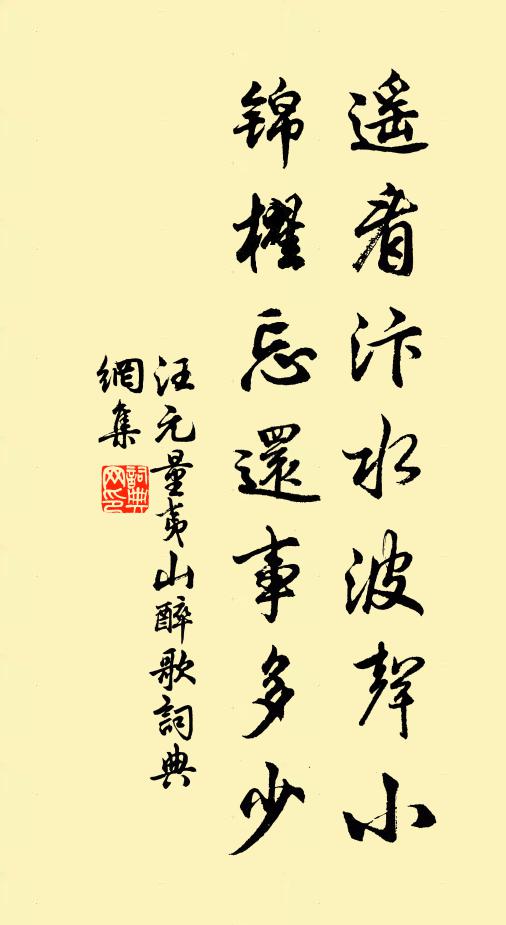 遥看汴水波聲小
錦櫂忘還事多少
汪元量夷山醉歌詞典
網集
詞典網印